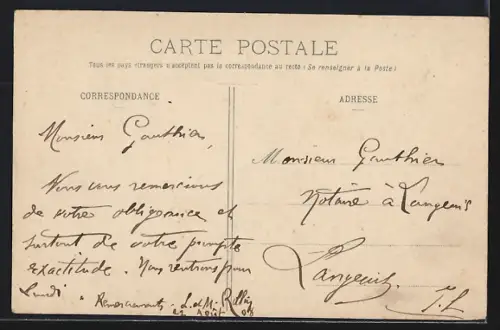 CARTE POSTALE
Tous les pays étrangers n'acceptent pas la correspondance au recto (Se renseigner à la Poste)
CORRESPONDANCE
Monsieur Gauthier,
Nous vous remercions
de votre obligeance et
surtout de votre prompte
exactitude. Nous rentrons pour
Lundi
Remerciements
Août 08
ADRESSE
Monsieur Gauthier
Notaire à Langeais
Langeais.
I. L